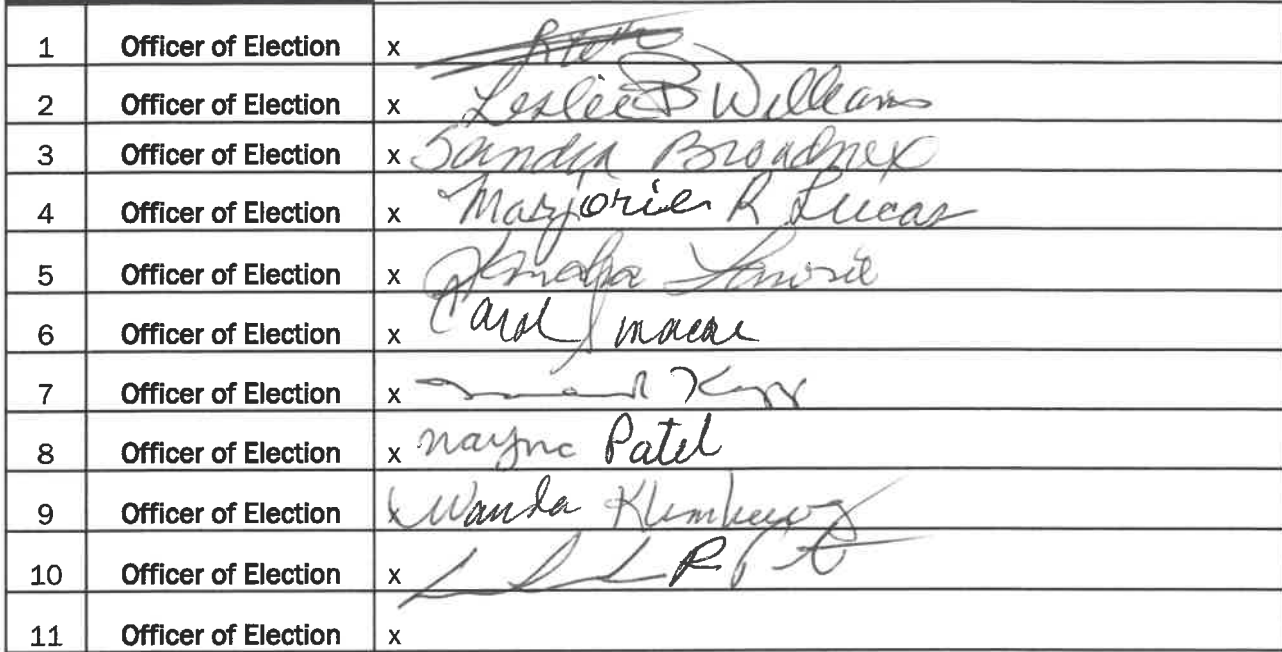 1 Officer of Election x
2 Officer of Election x Leslie B Williams
3 Officer of Election x Sandra Broadnex
4 Officer of Election x Marjorie R Lucas
5 Officer of Election x
6 Officer of Election x Carol
7 Officer of Election x
8 Officer of Election x Nayna Patel
9 Officer of Election x Wanda
10 Officer of Election x
11 Officer of Election x